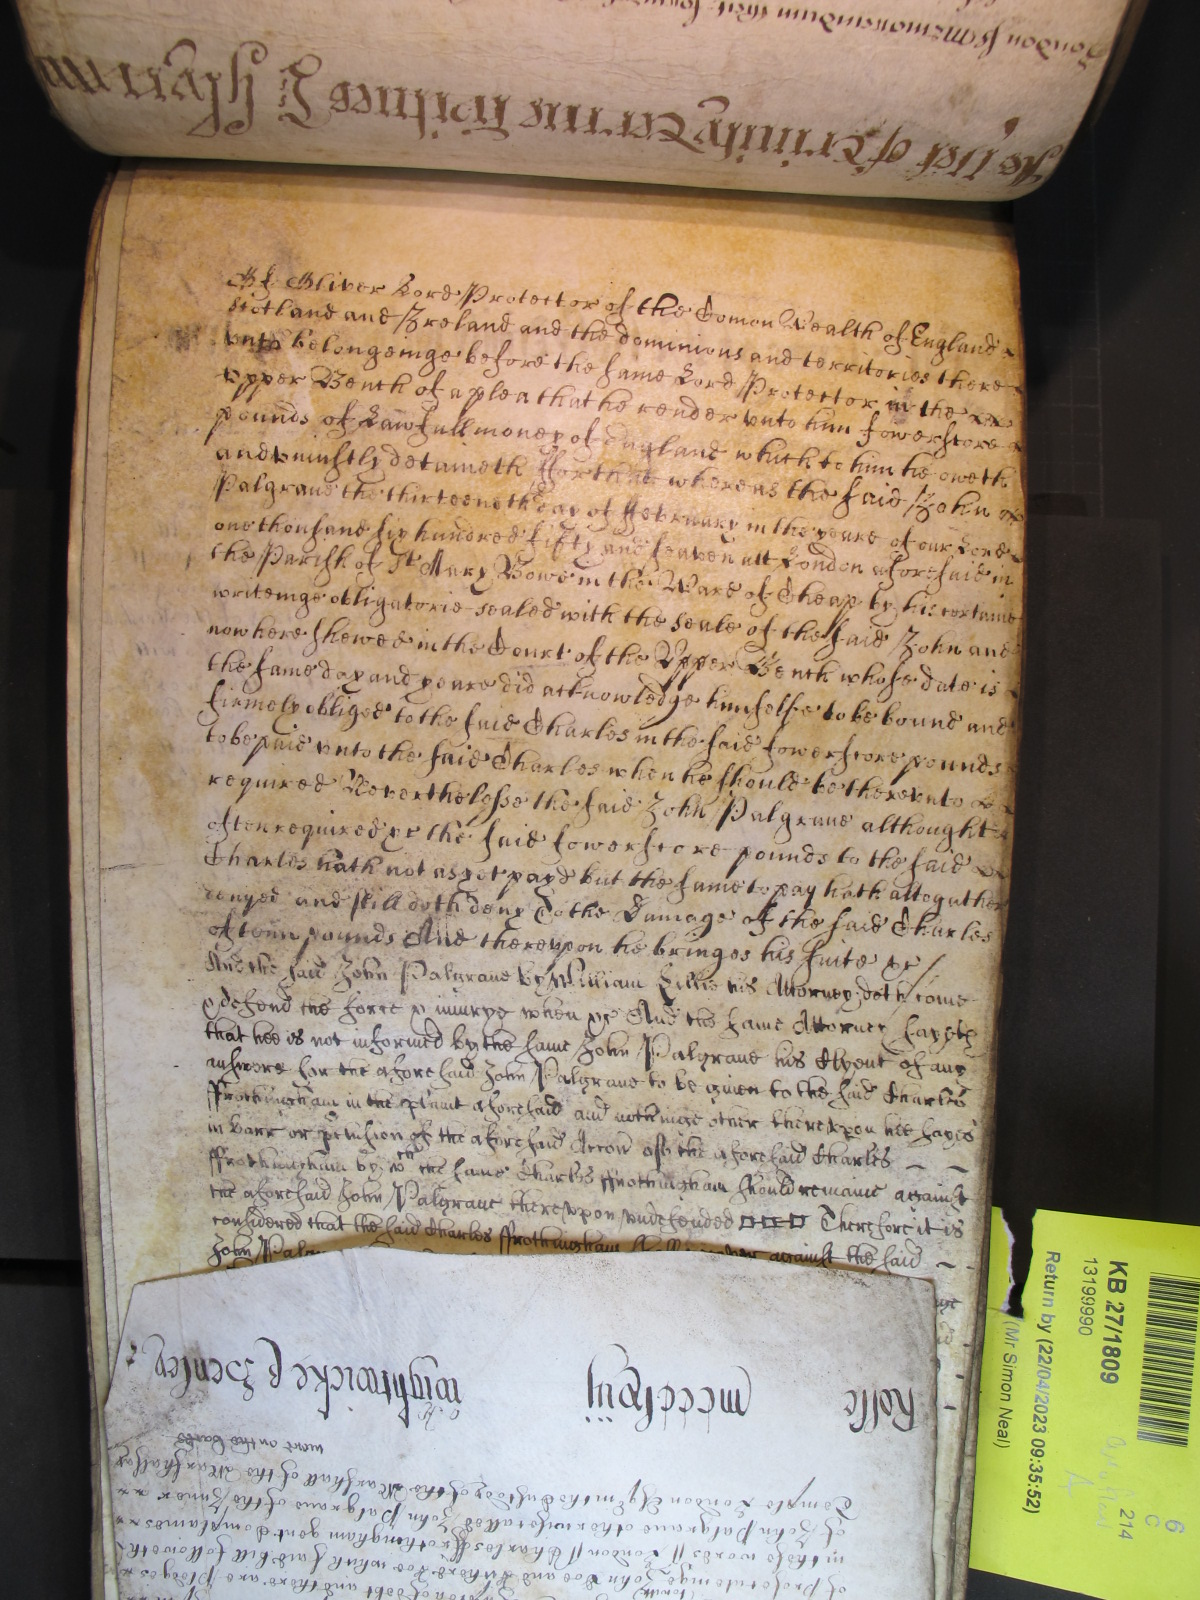 London ss Memorandum that
The Rest of Trinity Terme
Of Oliver Lord Protector of the Comon Wealth of England
Scotland and Ireland and the dominions and territories there
unto belongeinge before the same Lord Protector in the
Upper Bench of a plea that he render unto him fowerscore
pounds of Lawfull money of England which to him he oweth
and uniustly detaineth ffor that whereas the said John
Palgrave the thirteenth day of ffebruary in the yeare of our Lord
one thousand six hundred fifty and seaven att London aforesaid in
the Parish of St Mary Bowe in the Ward of Cheap by his certaine
writeinge obligatorie sealed with the seale of the said John and
now here shewed in the Court of the Upper Bench whose date is
the same day and yeare did acknowledge himselfe to be bound and
firmely obliged to the said Charles in the said fowerscore pounds
to be paid unto the said Charles when he should be thereunto
required Neverthelesse the said John Palgrave althought
often required &c the said fowerscore pounds to the said
Charles hath not as yet payd but the same to pay hath altogather
denyed and still doth deny To the Damage of the said Charles
of tenn pounds And thereupon he bringes his suite &c
And the said John Palgrave by William Lillie his Attorney doth come
& defend the force & iniurye when &c And the same Attorney sayeth
that hee is not informed by the same John Palgrave his Clyent of any
answere for the aforesaid John Palgrave to be given to the said Charles
ffrothingham in the plaint aforesaid and nothinge other thereupon hee sayes
in barr or of the aforesaid Accon of the aforesaid Charles
ffrothingham by wch the same Charles ffrothingham should remaine against
the aforesaid John Palgrave thereupon undefended Therefore it is
considered that the said Charles ffrothingham against the said
John
Rolle
Wightwicke & Henley
went on the backe
Temple London Esqr in the Custody of the Marshall of the Marshalsey
of John Palgrave otherwise called John Palgrave of the Inner
in these words London ss Charles ffrothingham gent Complaines
of prosecuteinge John Doe and Richard Roe which said bill followeth
of debt and there are Pledges
KB 27/1809
13199990
Return by (22/04/2023 09:35:52)
(Mr Simon Neal)
6
C
214